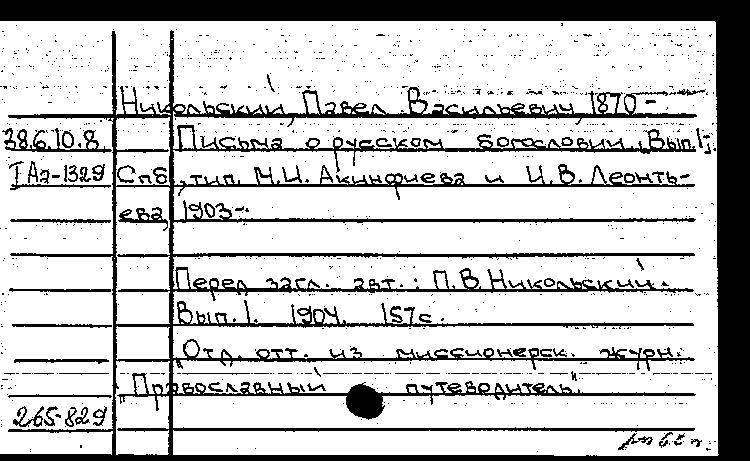 Никольский, Павел Васильевич, 1870-
38.6.10.8 Письма о русском богословии. Вып.1-.
I Аа-1329 Спб., тип. М.И. Акинфиева и И.В. Леонть-
ева, 1903-.
Перед загл. авт.: П.В. Никольский.
Вып.1. 1904. 157с.
Отд. отт. из миссионерск. журн.
"Православный путеводитель".
265-829